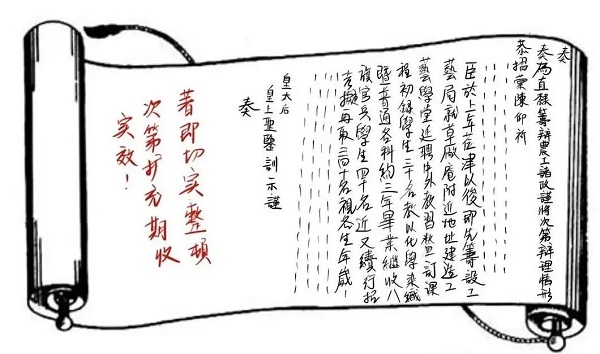 奏
奏為直隸籌辦農工諸政謹將次第辦理情形
恭招彙陳仰祈
臣於上年莅津以後即先籌設工
藝局就草廠庵附近地址建造工
藝學堂延聘中外教習釐訂課
程初錄學生三十名教以化學染織
暨普通各科約三年畢業繼收八
旗官兵學生四十名近又續行招
考擬每取三四十名視各生年歲
皇太后
皇上聖鑒訓示謹
奏
著即切实整頓
次第扩充期收
实效！